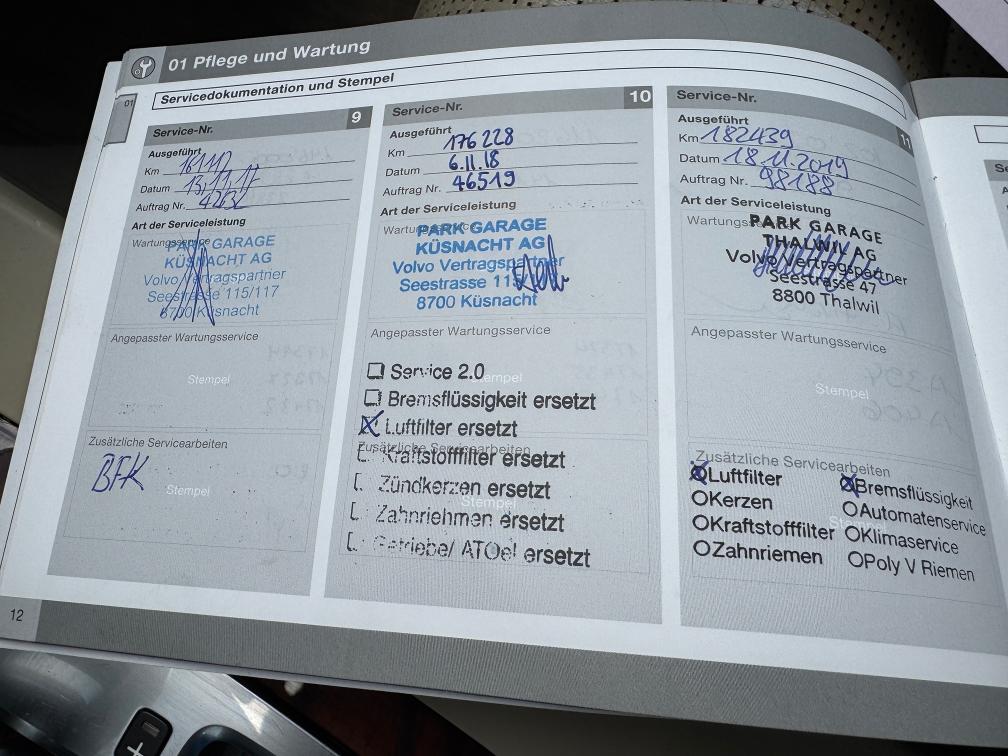 01 Pflege und Wartung
01
Servicedokumentation und Stempel
Service-Nr. 9
Ausgeführt
Km
Datum
Auftrag Nr.
Art der Serviceleistung
Wartungsservice
PARK GARAGE
KÜSNACHT AG
Volvo Vertragspartner
Seestrasse 115/117
8700 Küsnacht
Angepasster Wartungsservice
Stempel
Zusätzliche Servicearbeiten
BFK
Stempel
Service-Nr. 10
Ausgeführt
Km 176228
Datum 6.11.18
Auftrag Nr. 46519
Art der Serviceleistung
PARK GARAGE
KÜSNACHT AG
Volvo Vertragspartner
Seestrasse
8700 Küsnacht
Angepasster Wartungsservice
Service 2.0
Stempel
Bremsflüssigkeit ersetzt
Luftfilter ersetzt
Zusätzliche Servicearbeiten
Kraftstofffilter ersetzt
Zündkerzen ersetzt
Stempel
Zahnriehmen ersetzt
Getriebe/ ATOel ersetzt
Service-Nr. 11
Ausgeführt
Km 182439
Datum 18.11.2019
Auftrag Nr. 98188
Art der Serviceleistung
PARK GARAGE
THALWIL AG
Volvo Vertragspartner
Seestrasse 47
8800 Thalwil
Angepasster Wartungsservice
Stempel
Zusätzliche Servicearbeiten
Luftfilter Bremsflüssigkeit
Kerzen Automatenservice
Kraftstofffilter Klimaservice
Zahnriemen Poly V Riemen
12